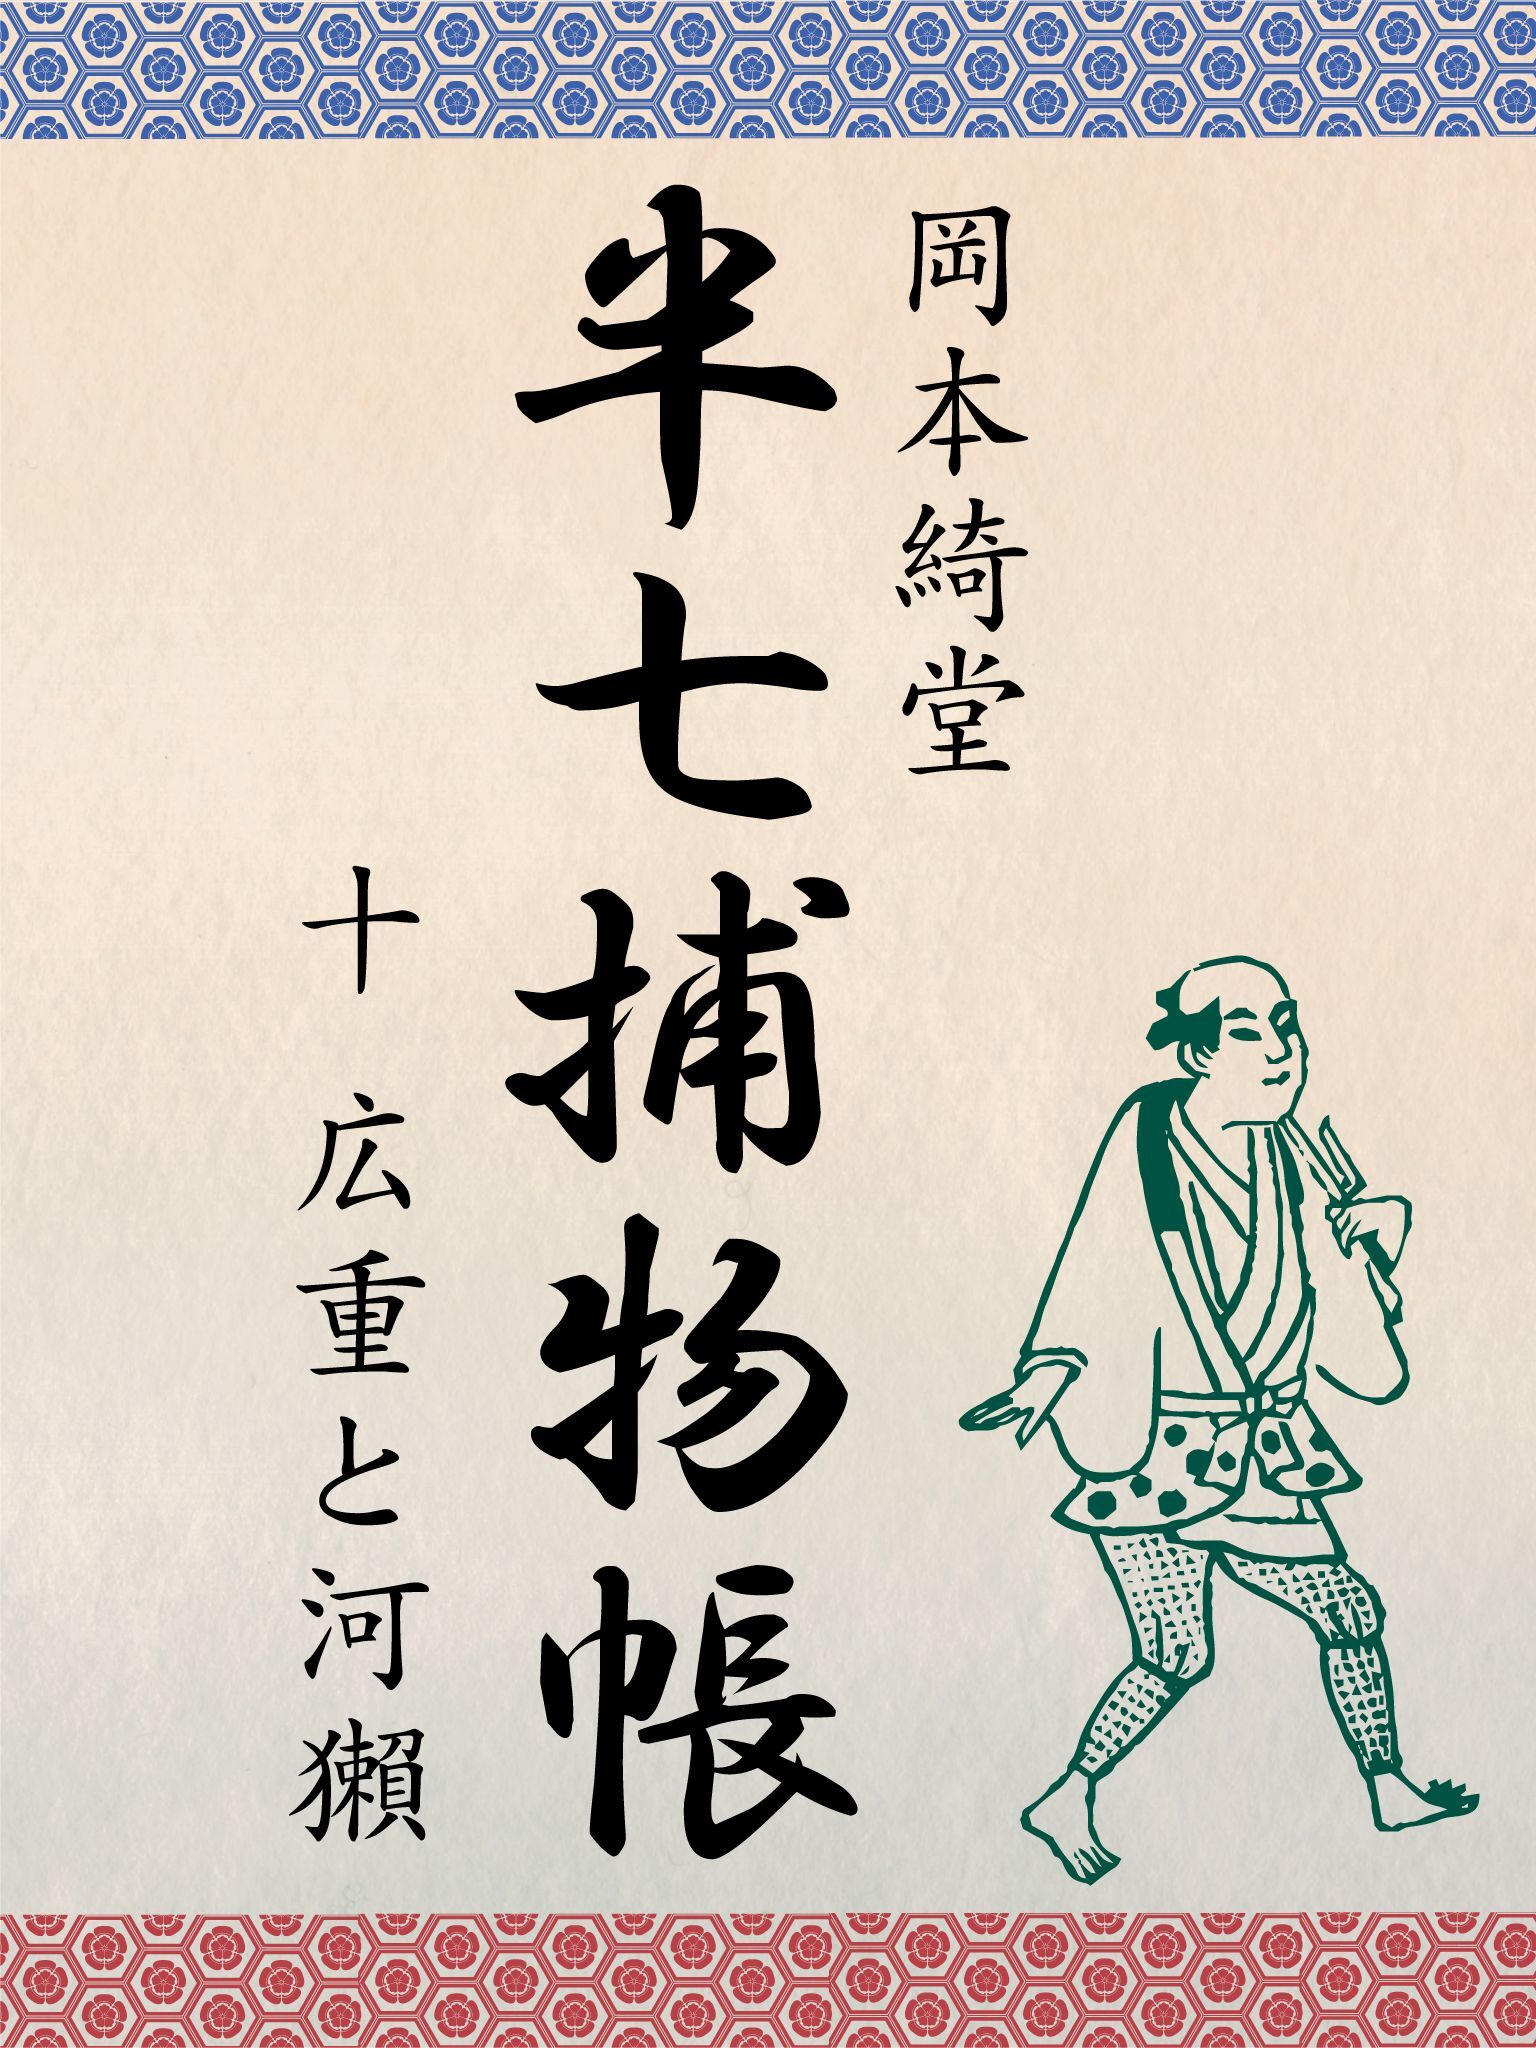 岡本綺堂
半七捕物帳
十 広重と河獺